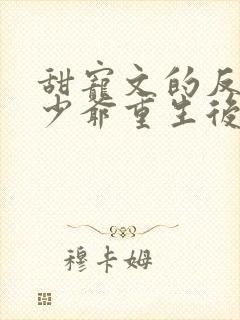 甜寵文的反
少爺重生後
穆卡姆